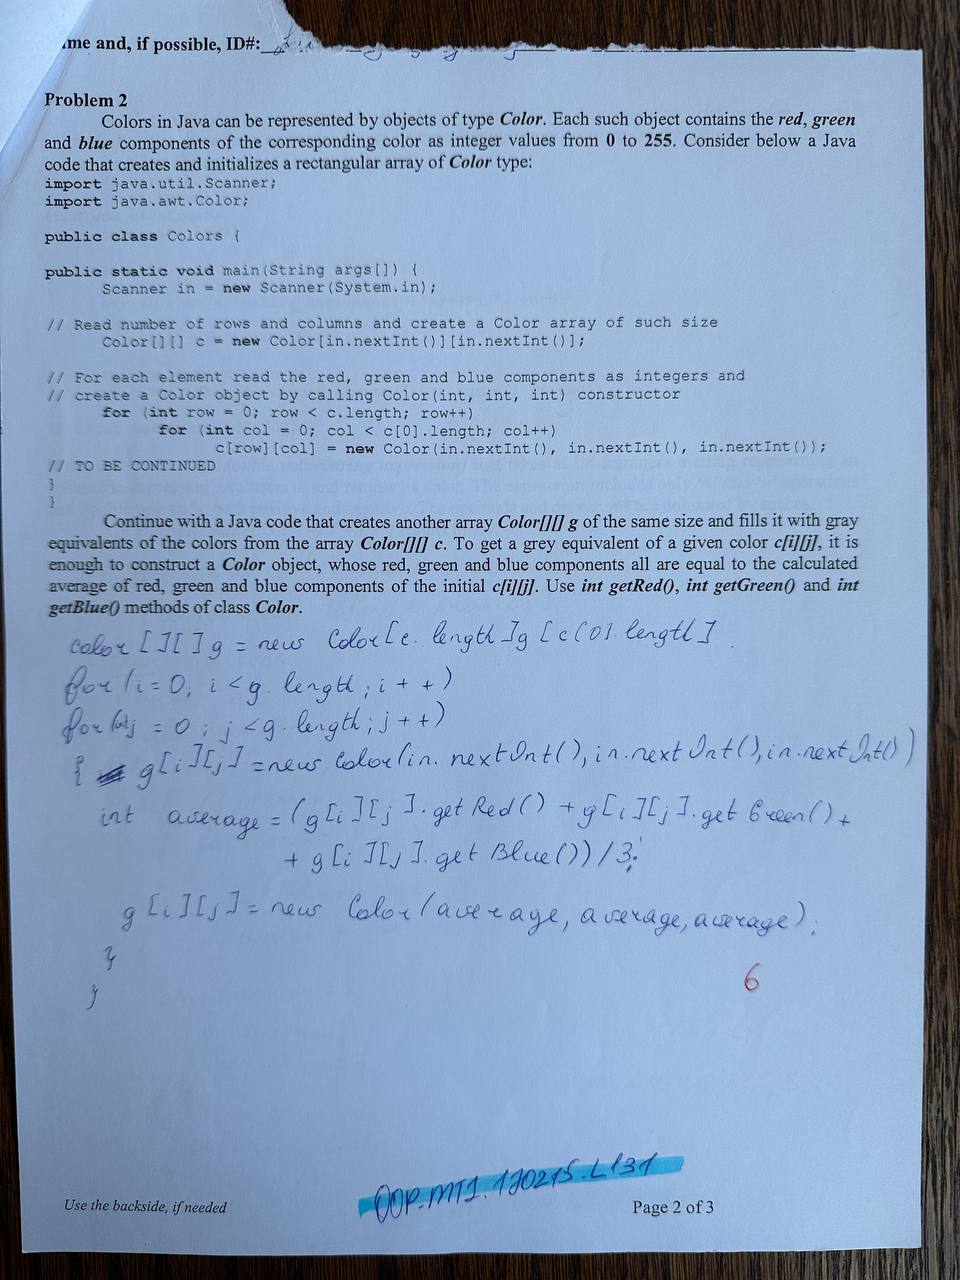 me and, if possible, ID#:
Problem 2
Colors in Java can be represented by objects of type Color. Each such object contains the red, green
and blue components of the corresponding color as integer values from 0 to 255. Consider below a Java
code that creates and initializes a rectangular array of Color type:
import java.util.Scanner;
import java.awt.Color;
public class Colors {
public static void main(String args[]) {
Scanner in = new Scanner(System.in);
// Read number of rows and columns and create a Color array of such size
Color[][] c = new Color[in.nextInt()][in.nextInt()];
// For each element read the red, green and blue components as integers and
// create a Color object by calling Color(int, int, int) constructor
for (int row = 0; row < c.length; row++)
for (int col = 0; col < c[0].length; col++)
c[row][col] = new Color(in.nextInt(), in.nextInt(), in.nextInt());
// TO BE CONTINUED
}
}
Continue with a Java code that creates another array Color[][] g of the same size and fills it with gray
equivalents of the colors from the array Color[][] c. To get a grey equivalent of a given color c[i][j], it is
enough to construct a Color object, whose red, green and blue components all are equal to the calculated
average of red, green and blue components of the initial c[i][j]. Use int getRed(), int getGreen() and int
getBlue() methods of class Color.
color [][] g = new Color[c. length]g [c[0]. length]
for (i = 0; i < g. length; i + +)
for (j = 0; j < g. length; j + +)
{ g[i][j] = new Color(in. nextInt(), in.nextInt(), in.nextInt())
int average = (g[i][j]. get Red() + g[i][j]. get Green() +
+ g[i][j]. get Blue()) / 3;
g[i][j] = new Color(average, average, average);
}
}
6
OOP.MT1.170215.L131
Use the backside, if needed
Page 2 of 3